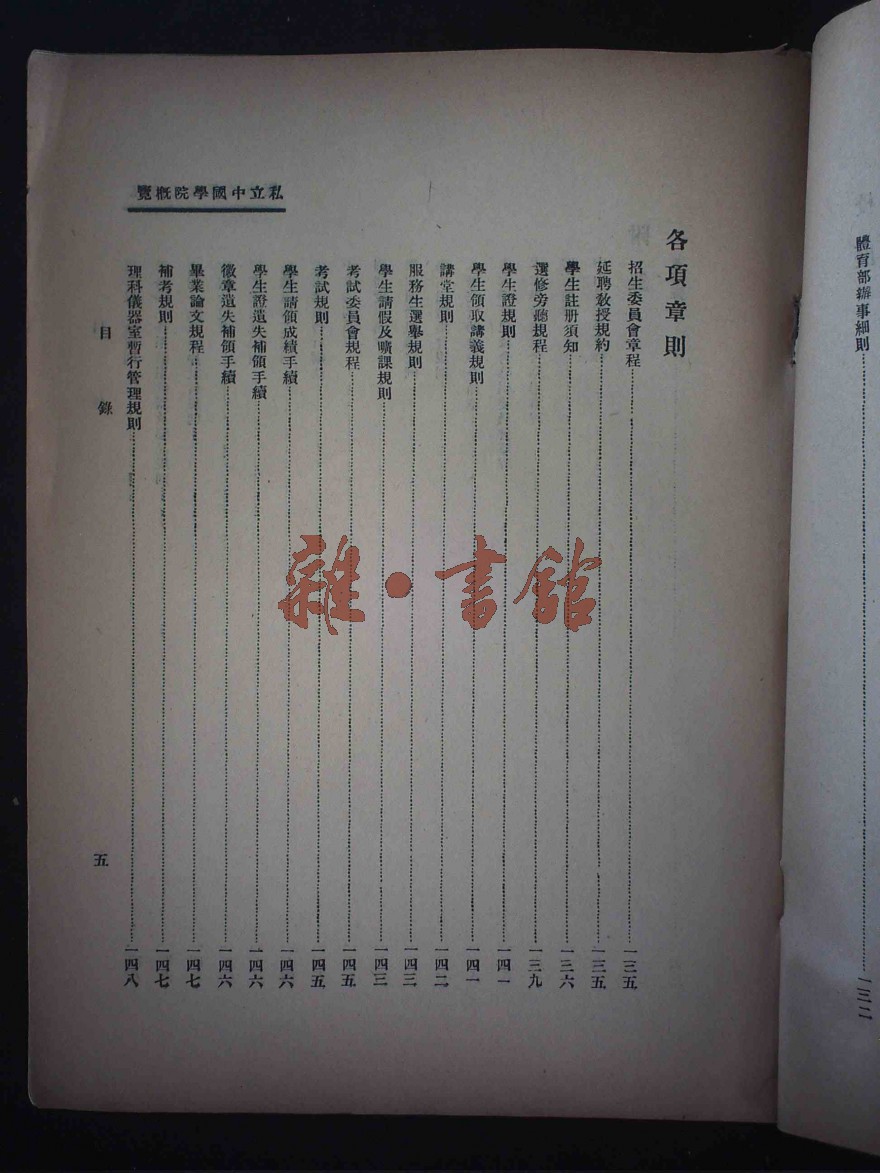 體育部辦事細則……一三二
私立中國學院概覽
各項章則
招生委員會章程……一三五
延聘教授規約……一三五
學生註册須知……一三六
選修旁聽規程……一三九
學生證規則……一四一
學生領取講義規則……一四一
講堂規則……一四二
服務生選舉規則……一四三
學生請假及曠課規則……一四三
考試委員會規程……一四五
考試規則……一四五
學生請領成績手續……一四六
學生證遺失補領手續……一四六
徽章遺失補領手續……一四六
畢業論文規程……一四七
補考規則……一四七
理科儀器室暫行管理規則……一四八
目錄
五
雜·書館